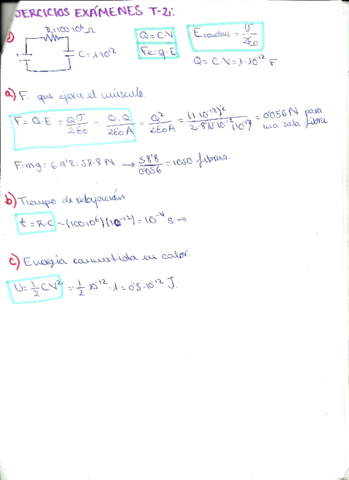 EJERCICIOS EXÁMENES T-2:
1) R=100·10⁶Ω
C=1·10⁻¹²
Q=C·V
Fe=q·E
E condens = σ/2ε₀
Q=C·V=1·10⁻¹² F
a) F. que ejerce el músculo.
F=Q·E = Qσ/2ε₀ = Q·Q/2ε₀A = Q²/2ε₀A = (1·10⁻¹²)²/ = 0'056N para una sola fibra
F=mg=6·9'8=58'8N → 58'8/0'056 = 1050 fibras.
b) Tiempo de relajación
t=R·C=(100·10⁶)(10⁻¹²)=10⁻⁴ s →
c) Energía convertida en calor.
U=½CV²=½·10⁻¹²·1=0'5·10⁻¹² J.